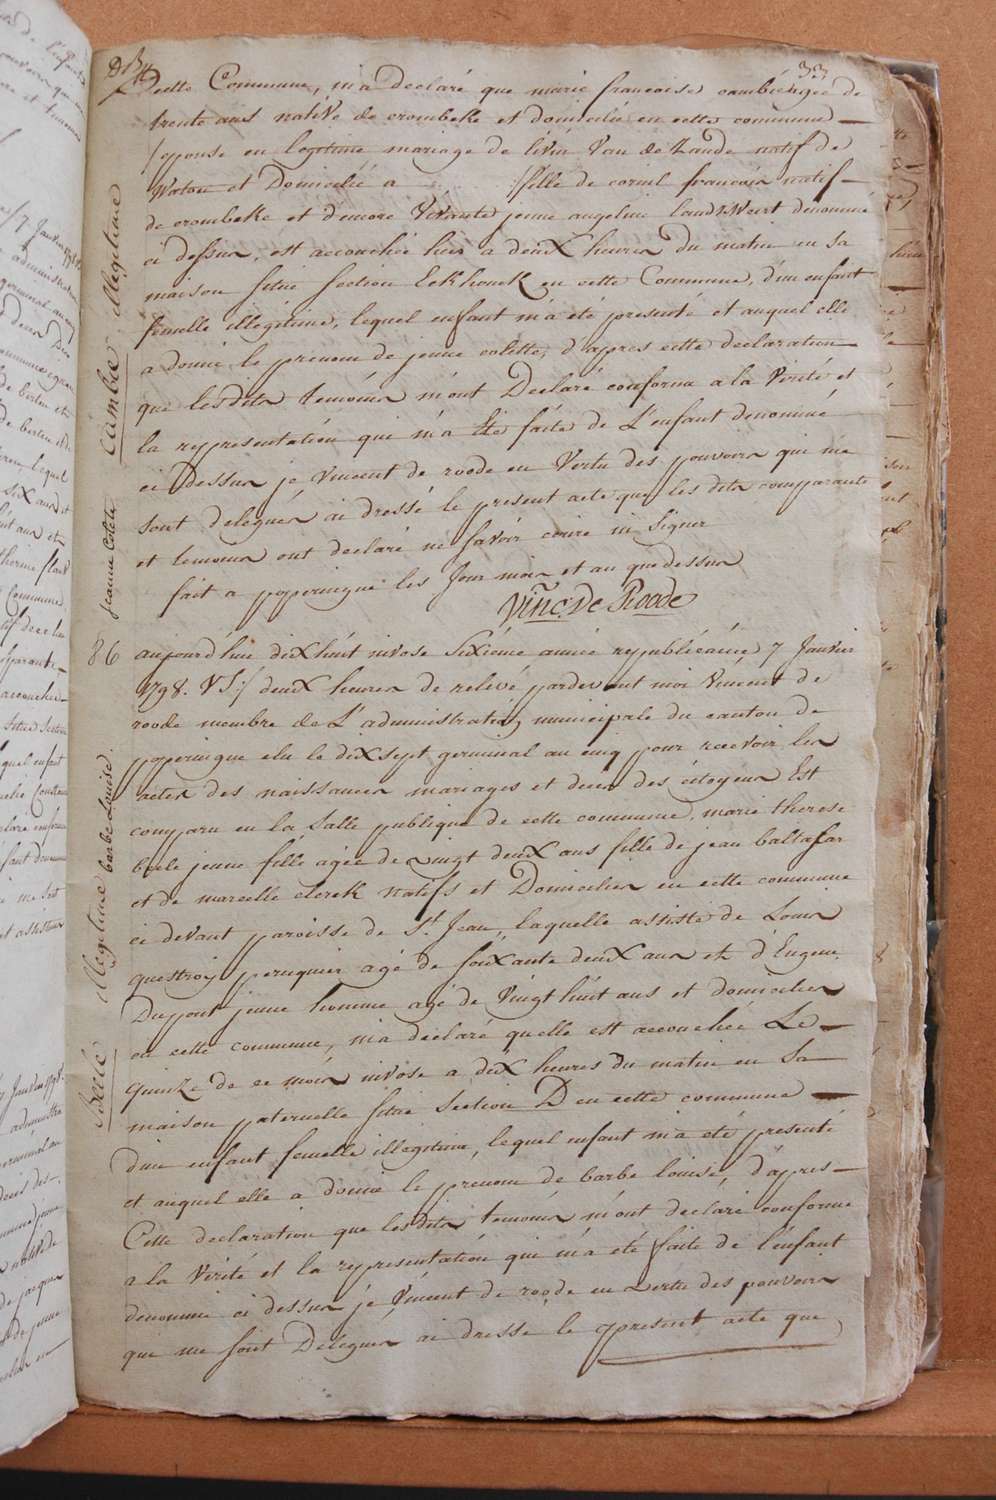 33
dette Commune, m'a declaré que marie francoise cambié agée de
trente ans native de crombeke et domiciliée en cette commune
epouse en legitime mariage de livin Van de Zande natif de
Watou et Domicilié a fille de cornil francois natif
de crombeke et d'encore Vivante jeune angeline landtWeirt denommé
ci dessus, est accouchée hier a deuX heures Du matin en sa
maison sitüe section Eekhouck en cette Commune, d'un enfant
femelle illégitime, lequel enfant m'a été presenté et auquel elle
a donné le prenom de jenne colette, d'apres cette declaration
que lesdits temoins m'ont Declaré conforme a la Verité et
la representation que m'a Eté faite de L'enfant denommé
ci Dessus je Vincent de roode en Vertu des pouvoirs qui me
sont deleguer ai dressé le present acte que les dits comparants
et temoins ont declaré ne savoir ecrire ni signer
fait a poperingue les Jour mois et an que dessus
Vinc. De Roode
Cambié illegitime
jeanne Colete
86 aujourd'hui dix huit nivose Sixiéme année republicaine 7 Janvier
1798. VS:/ deuX heures de relevé pardevant moi Vincent de
roode membre de L'administration municipale du canton de
poperingue elu le dix sept germinal an cinq pour recevoir les
actes des naissances mariages et deces des citoyens Est
comparu en la Salle publique de cette commune, marie therese
beele jeune fille agée de vingt deuX ans fille de jean baltasar
et de marcelle clerck natifs et Domicilies en cette commune
ci devant paroisse de St. Jean, laquelle assisté de Louis
questroy peruquier agé de soiXante deuX ans et d'Eugene
Dupont jeune homme agé de Vingt huit ans et domicilies
en cette commune, m'a declaré qu'elle est accouchée Le
quinze de ce mois nivose a diX heures du matin en Sa
maison paternelle sitüe Section D en cette commune
d'un enfant femelle illegitime, lequel enfant m'a eté presenté
et auquel elle a donné le prenom de barbe louise, d'apres
Cette declaration que lesdits temoins m'ont declaré conforme
a la Verité et la representation qui m'a eté faite de l'enfant
denommé ci dessus je Vincent de roode en Vertu des pouvoirs
que me sont Deleguer ai dressé le present acte que
Beele illegitime barbe Louise